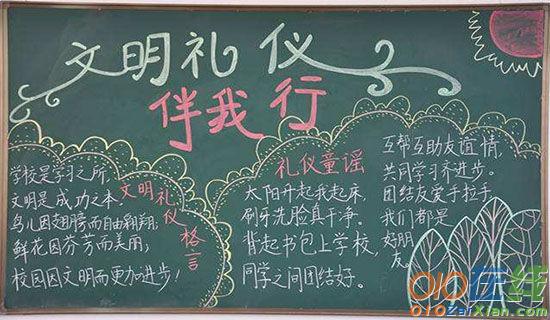 文明礼仪
伴我行
文明礼仪格言
学校是学习之所，
文明是成功之本。
鸟儿因翅膀而自由翱翔，
鲜花因芬芳而美丽；
校园因文明而更加进步！
礼仪童谣
太阳升起我起床，
刷牙洗脸真干净。
背起书包上学校，
同学之间团结好。
互帮互助友谊情，
共同学习齐进步。
团结友爱手拉手，
我们都是
好朋友。
010在线
010ZaiXian.com